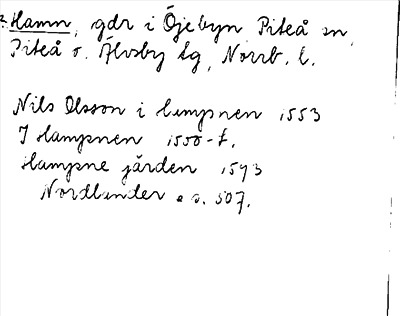 Hamn, gdr i Öjebyn, Piteå sn,
Piteå o. Älvsby tg, Norrb. l.
Nils Olsson i hmpnen 1553
I Hampnen 1550-t.
Hampne jården 1593
Nordlander a. s. 507.